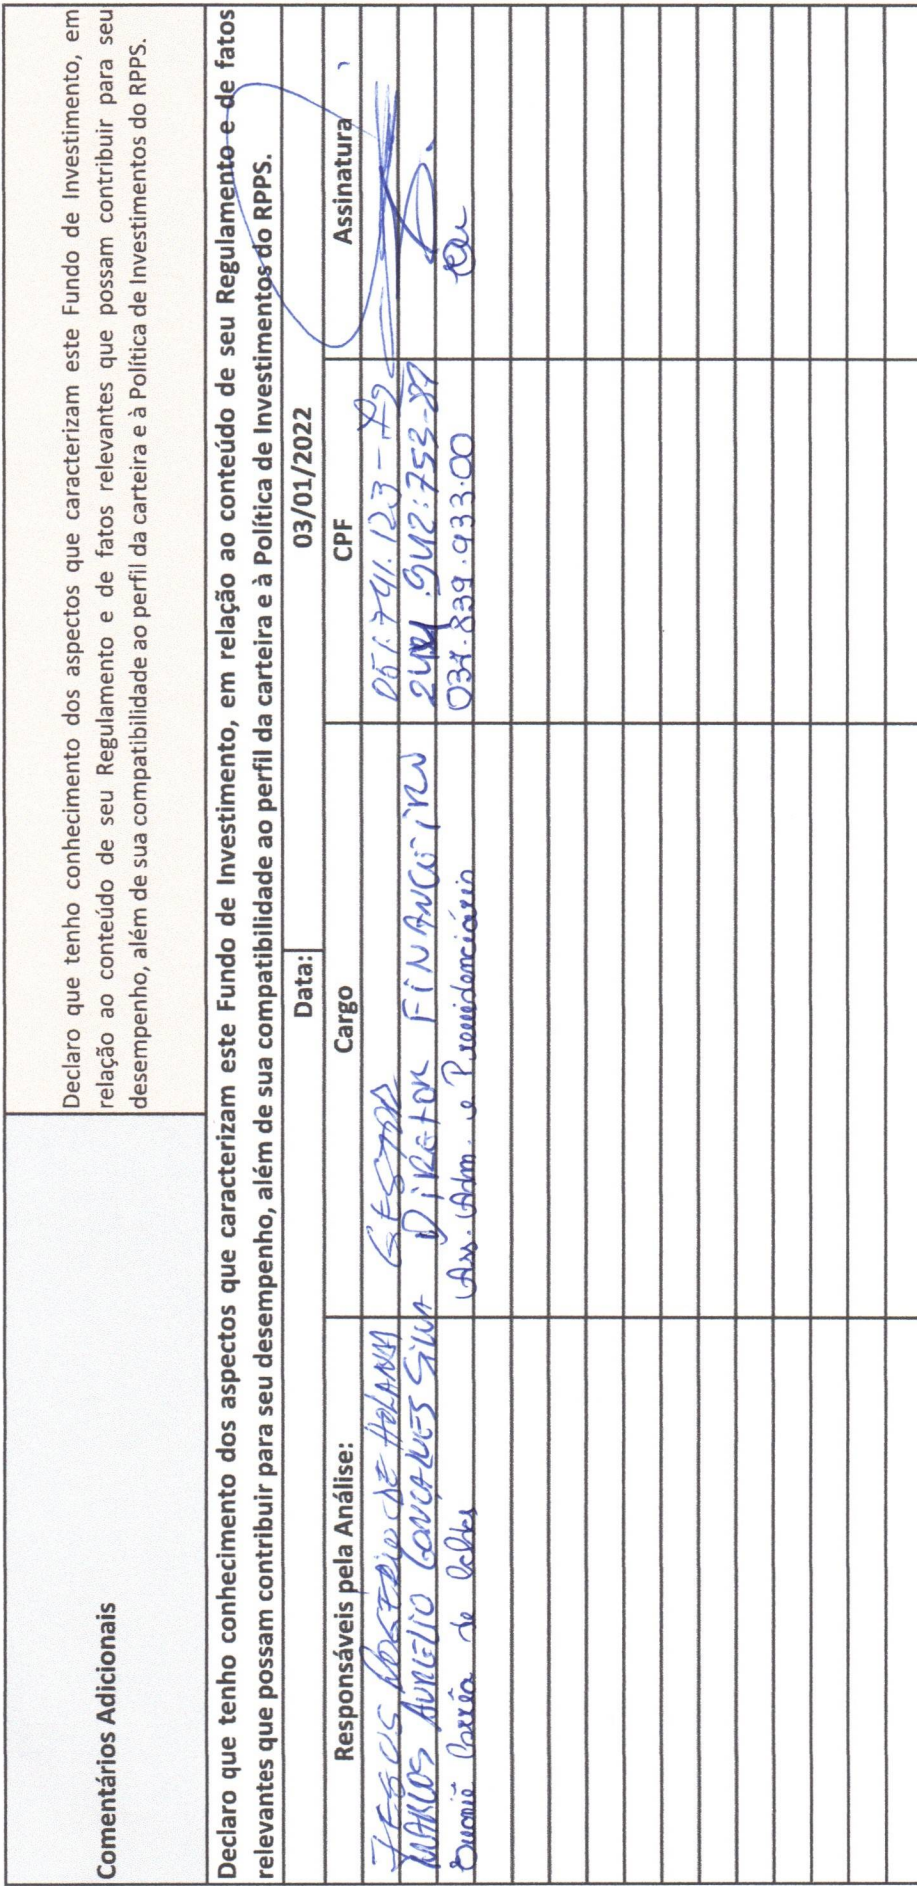 Comentários Adicionais
Declaro que tenho conhecimento dos aspectos que caracterizam este Fundo de Investimento, em
relação ao conteúdo de seu Regulamento e de fatos relevantes que possam contribuir para seu
desempenho, além de sua compatibilidade ao perfil da carteira e à Política de Investimentos do RPPS.
Declaro que tenho conhecimento dos aspectos que caracterizam este Fundo de Investimento, em relação ao conteúdo de seu Regulamento e de fatos
relevantes que possam contribuir para seu desempenho, além de sua compatibilidade ao perfil da carteira e à Política de Investimentos do RPPS.
Data: 03/01/2022
Responsáveis pela Análise: Cargo CPF Assinatura
JESUS ROGÉRIO DE HOLANDA GESTOR
MARCOS AURELIO GONÇALVES SILVA DIRETOR FINANCEIRO
Corrêa de Ass. Adm. e Previdenciário 037.839.933.00